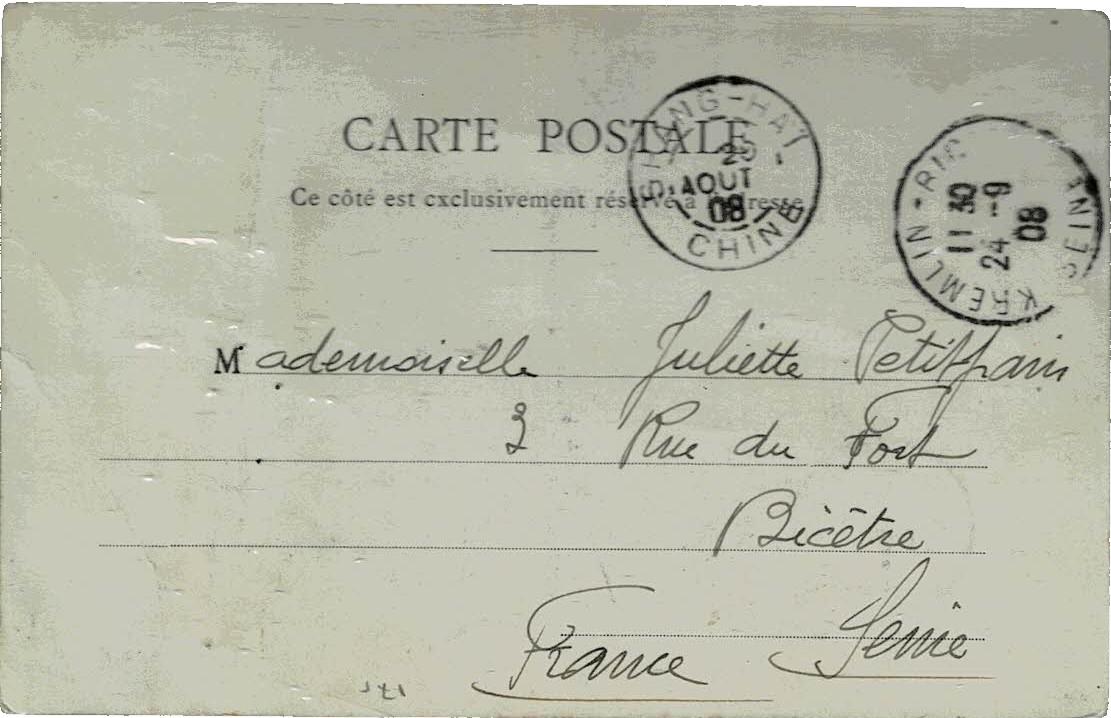 CARTE POSTALE
Ce côté est exclusivement réservé à l'adresse
SHANG-HAI - CHINE
25
AOUT
08
KREMLIN-BIC SEINE
11 30
24 -9
08
Mademoiselle Juliette Petitpain
3 Rue du Fort
Bicêtre
France Seine